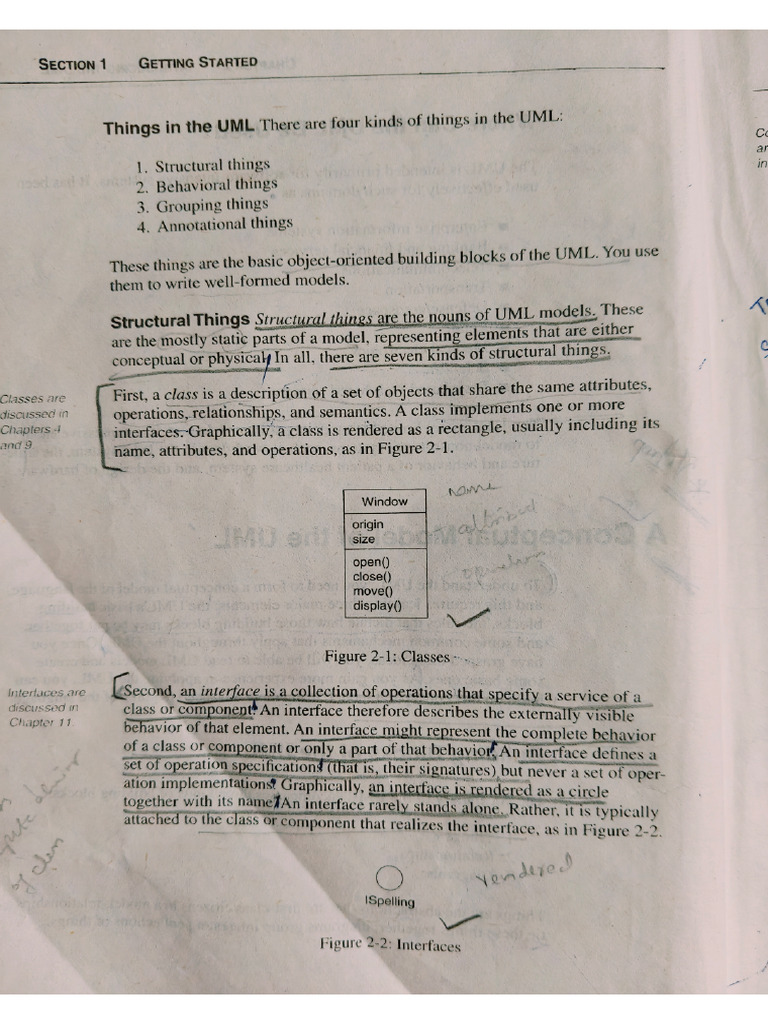 SECTION 1 GETTING STARTED
Things in the UML There are four kinds of things in the UML:
1. Structural things
2. Behavioral things
3. Grouping things
4. Annotational things
These things are the basic object-oriented building blocks of the UML. You use
them to write well-formed models.
Structural Things Structural things are the nouns of UML models. These
are the mostly static parts of a model, representing elements that are either
conceptual or physical. In all, there are seven kinds of structural things.
Classes are
discussed in
Chapters 4
and 9
First, a class is a description of a set of objects that share the same attributes,
operations, relationships, and semantics. A class implements one or more
interfaces. Graphically, a class is rendered as a rectangle, usually including its
name, attributes, and operations, as in Figure 2-1.
Window
name
origin
size
open()
close()
move()
display()
Figure 2-1: Classes
Interfaces are
discussed in
Chapter 11
Second, an interface is a collection of operations that specify a service of a
class or component. An interface therefore describes the externally visible
behavior of that element. An interface might represent the complete behavior
of a class or component or only a part of that behavior. An interface defines a
set of operation specifications (that is, their signatures) but never a set of oper-
ation implementations. Graphically, an interface is rendered as a circle
together with its name. An interface rarely stands alone. Rather, it is typically
attached to the class or component that realizes the interface, as in Figure 2-2.
of class
rendered
ISpelling
Figure 2-2: Interfaces